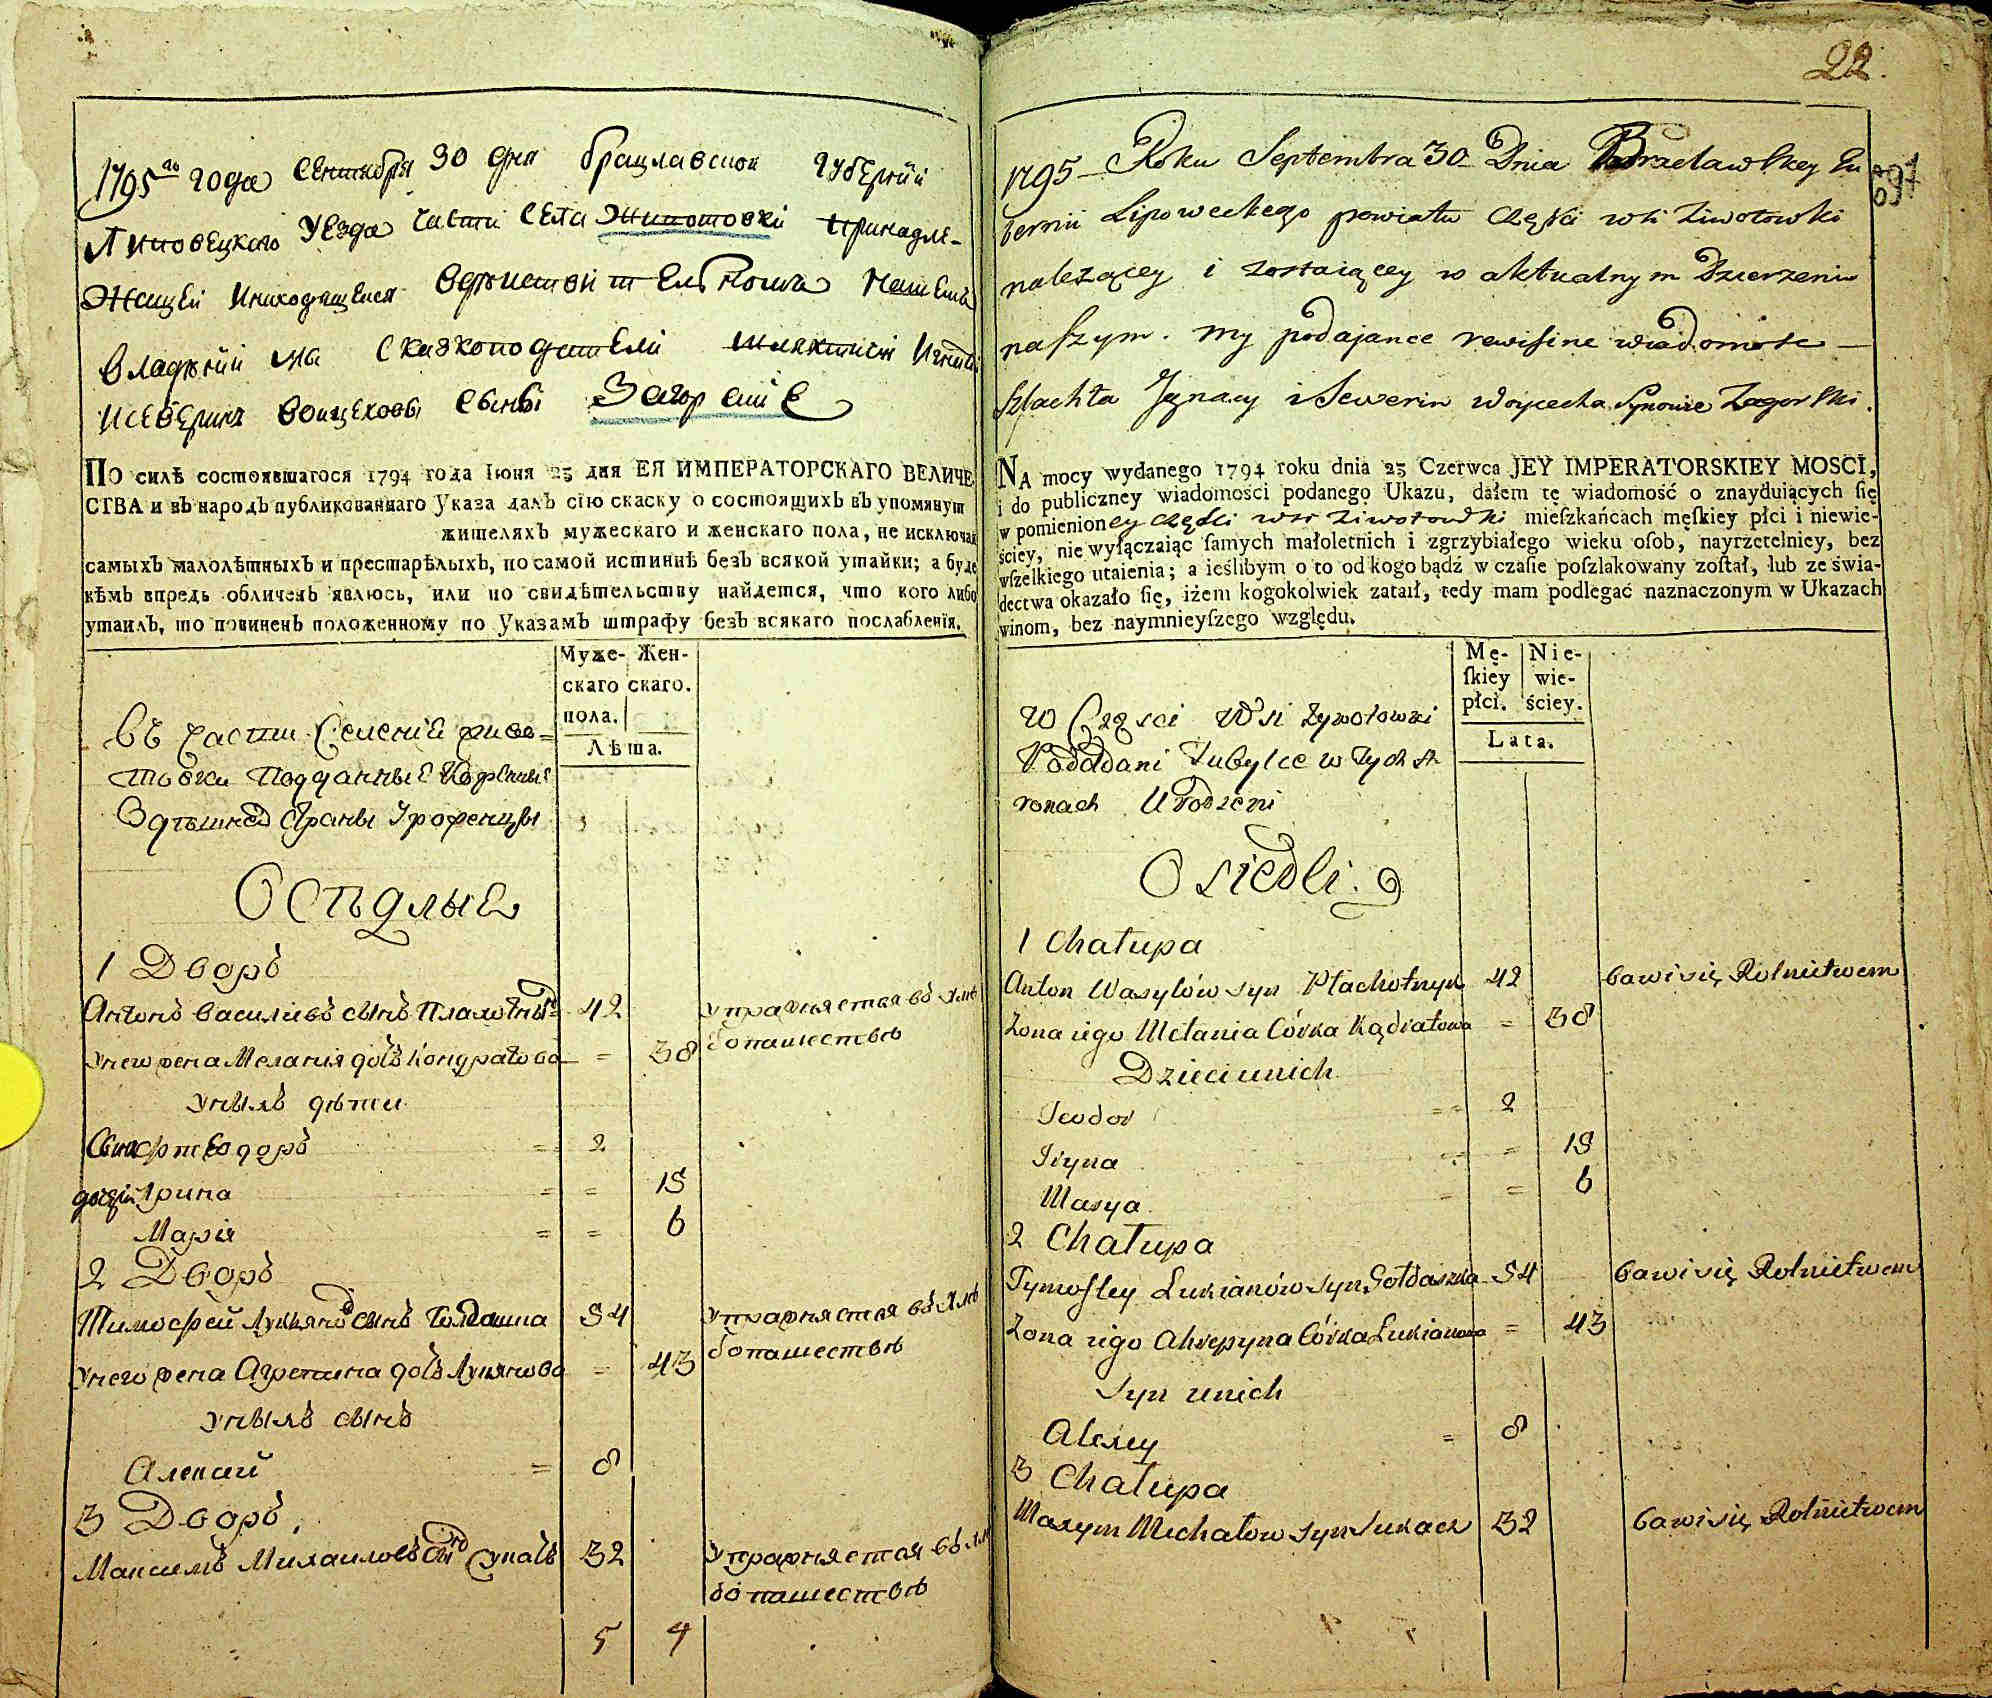 1795го года Сентября 30 дня Брацлавской Губернӥи
Липовецкого Уезда части села Животовки принадле-
жащей инаходящейся вдѣйствительномъ нашемъ
владѣнӥи мы сказкоподатели шляхтичи Игнатӥ
исевѣринъ войцеховы сыны Загорскіе
По силѣ состоявшагося 1794 года Іюня 23 дня ЕЯ ИМПЕРАТОРСКАГО ВЕЛИЧЕ
СТВА и въ народъ публикованнаго Указа далъ сію скаску о состоящихъ въ упомянут
жителяхъ мужескаго и женскаго пола, не исключая
самыхъ малолѣтныхъ и престарѣлыхъ, по самой истиннѣ безъ всякой утайки; а буде
кѣмъ впредь обличенъ явлюсь, или по свидѣтельству найдется, что кого либо
утаилъ, то повиненъ положенному по Указамъ штрафу безъ всякаго послабленія.
Муже- Жен-
скаго скаго.
пола.
Лѣта.
Въ части Селенӥя живо=
товки Подданные Коренные
Здѣшнед Страны Уроженцы
Осѣдлые
1 Дворъ
Антонъ василивъ сынъ Плахотныд 42 упражняется въ хлѣ
Унего жена Меланія дочь Кондратова = 38 бопашествѣ
Унихъ дѣти
Сынъ Теодоръ = 2
дочери Ирина = = 18
Марія = = 6
2 Дворъ
Тимофей Лукяновъ сынъ Голдашка 54 упражняется въ хлѣ
Унего жена Агрепина дочь Лукянова = 43 бопашествѣ
Унихъ сынъ
Алексӥй = 8
3 Дворъ.
Максимъ Михаиловъ сынъ Сукачь 32 Упражняется въ хлѣ
бопашествѣ
5 4
22.
391
1795 – Roku Septembra 30 Dnia Bracławskey Gu
bernii Lipoweckego powiatu Częsci wsi Ziwotowki
należącey i zostaiącey w aktualnym Dzierzeniu
naszym. my podajance rewisine wiadomośc –
szlachta Jgnacy i Sewerin Woycecha Synowie Zagorski.
NA mocy wydanego 1794 roku dnia 23 Czerwca JEY IMPERATORSKIEY MOSCI,
i do publiczney wiadomości podanego Ukazu, dałem tę wiadomość o znayduiących ſię
w pomienioney Częsci wsi Ziwotowki mieſzkańcach męſkiey płci i niewie-
ściey, nie wyłączaiąc ſamych małoletnich i zgrzybiałego wieku oſob, nayrzetelniey, bez
wſzelkiego utaienia; a ieślibym o to od kogo bądź w czaſie poſzlakowany zoſtał, lub ze świa-
dectwa okazało ſię, iżem kogokolwiek zataił, tedy mam podlegać naznaczonym w Ukazach
winom, bez naymnieyſzego względu.
Mę- Nie-
ſkiey wie-
płci. ściey.
Lata.
W Części Wsi Zywotowki
Poddani Tubylce w Tych st
ronach Urodzeni
Osiedli.
1 Chałupa
Anton Wasylów syn Płachotnyk 42 bawi się Rolnictwem
Zona iego Mełania Córka Kądratowa = 38
Dzieci unich
Teodor = = 2
Iryna = = 18
Marya = = 6
2 Chałupa
Tymofiey Łukianów syn Gołdaszka 54 bawi się Rolnictwem
Zona iego Ahrepyna Córka Łukianowa = 43
Syn unich
Alexey = 8
3 Chałupa
Maxym Michałow syn Sukacz 32 bawi się Rolnictwem